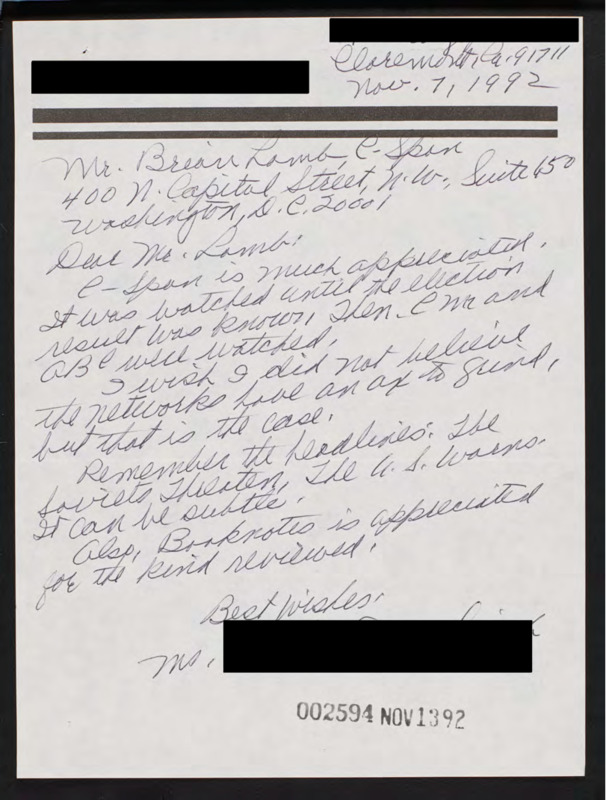 Claremont, Ca. 91711
Nov. 7, 1992
Mr. Brian Lamb, C-Span
400 N. Capitol Street, N.W., Suite 650
Washington, D.C. 20001
Dear Mr. Lamb:
C-Span is much appreciated.
It was watched until the election
result was known, Then C and
ABC were watched.
I wish I did not believe
the networks have an ax to grind,
but that is the case.
Remember the headlines: The
Soviets Threaten, The U.S. Warns.
It can be subtle.
Also, Booknotes is appreciated
for the kind reviewed.
Best Wishes,
Ms.
002594 NOV1392